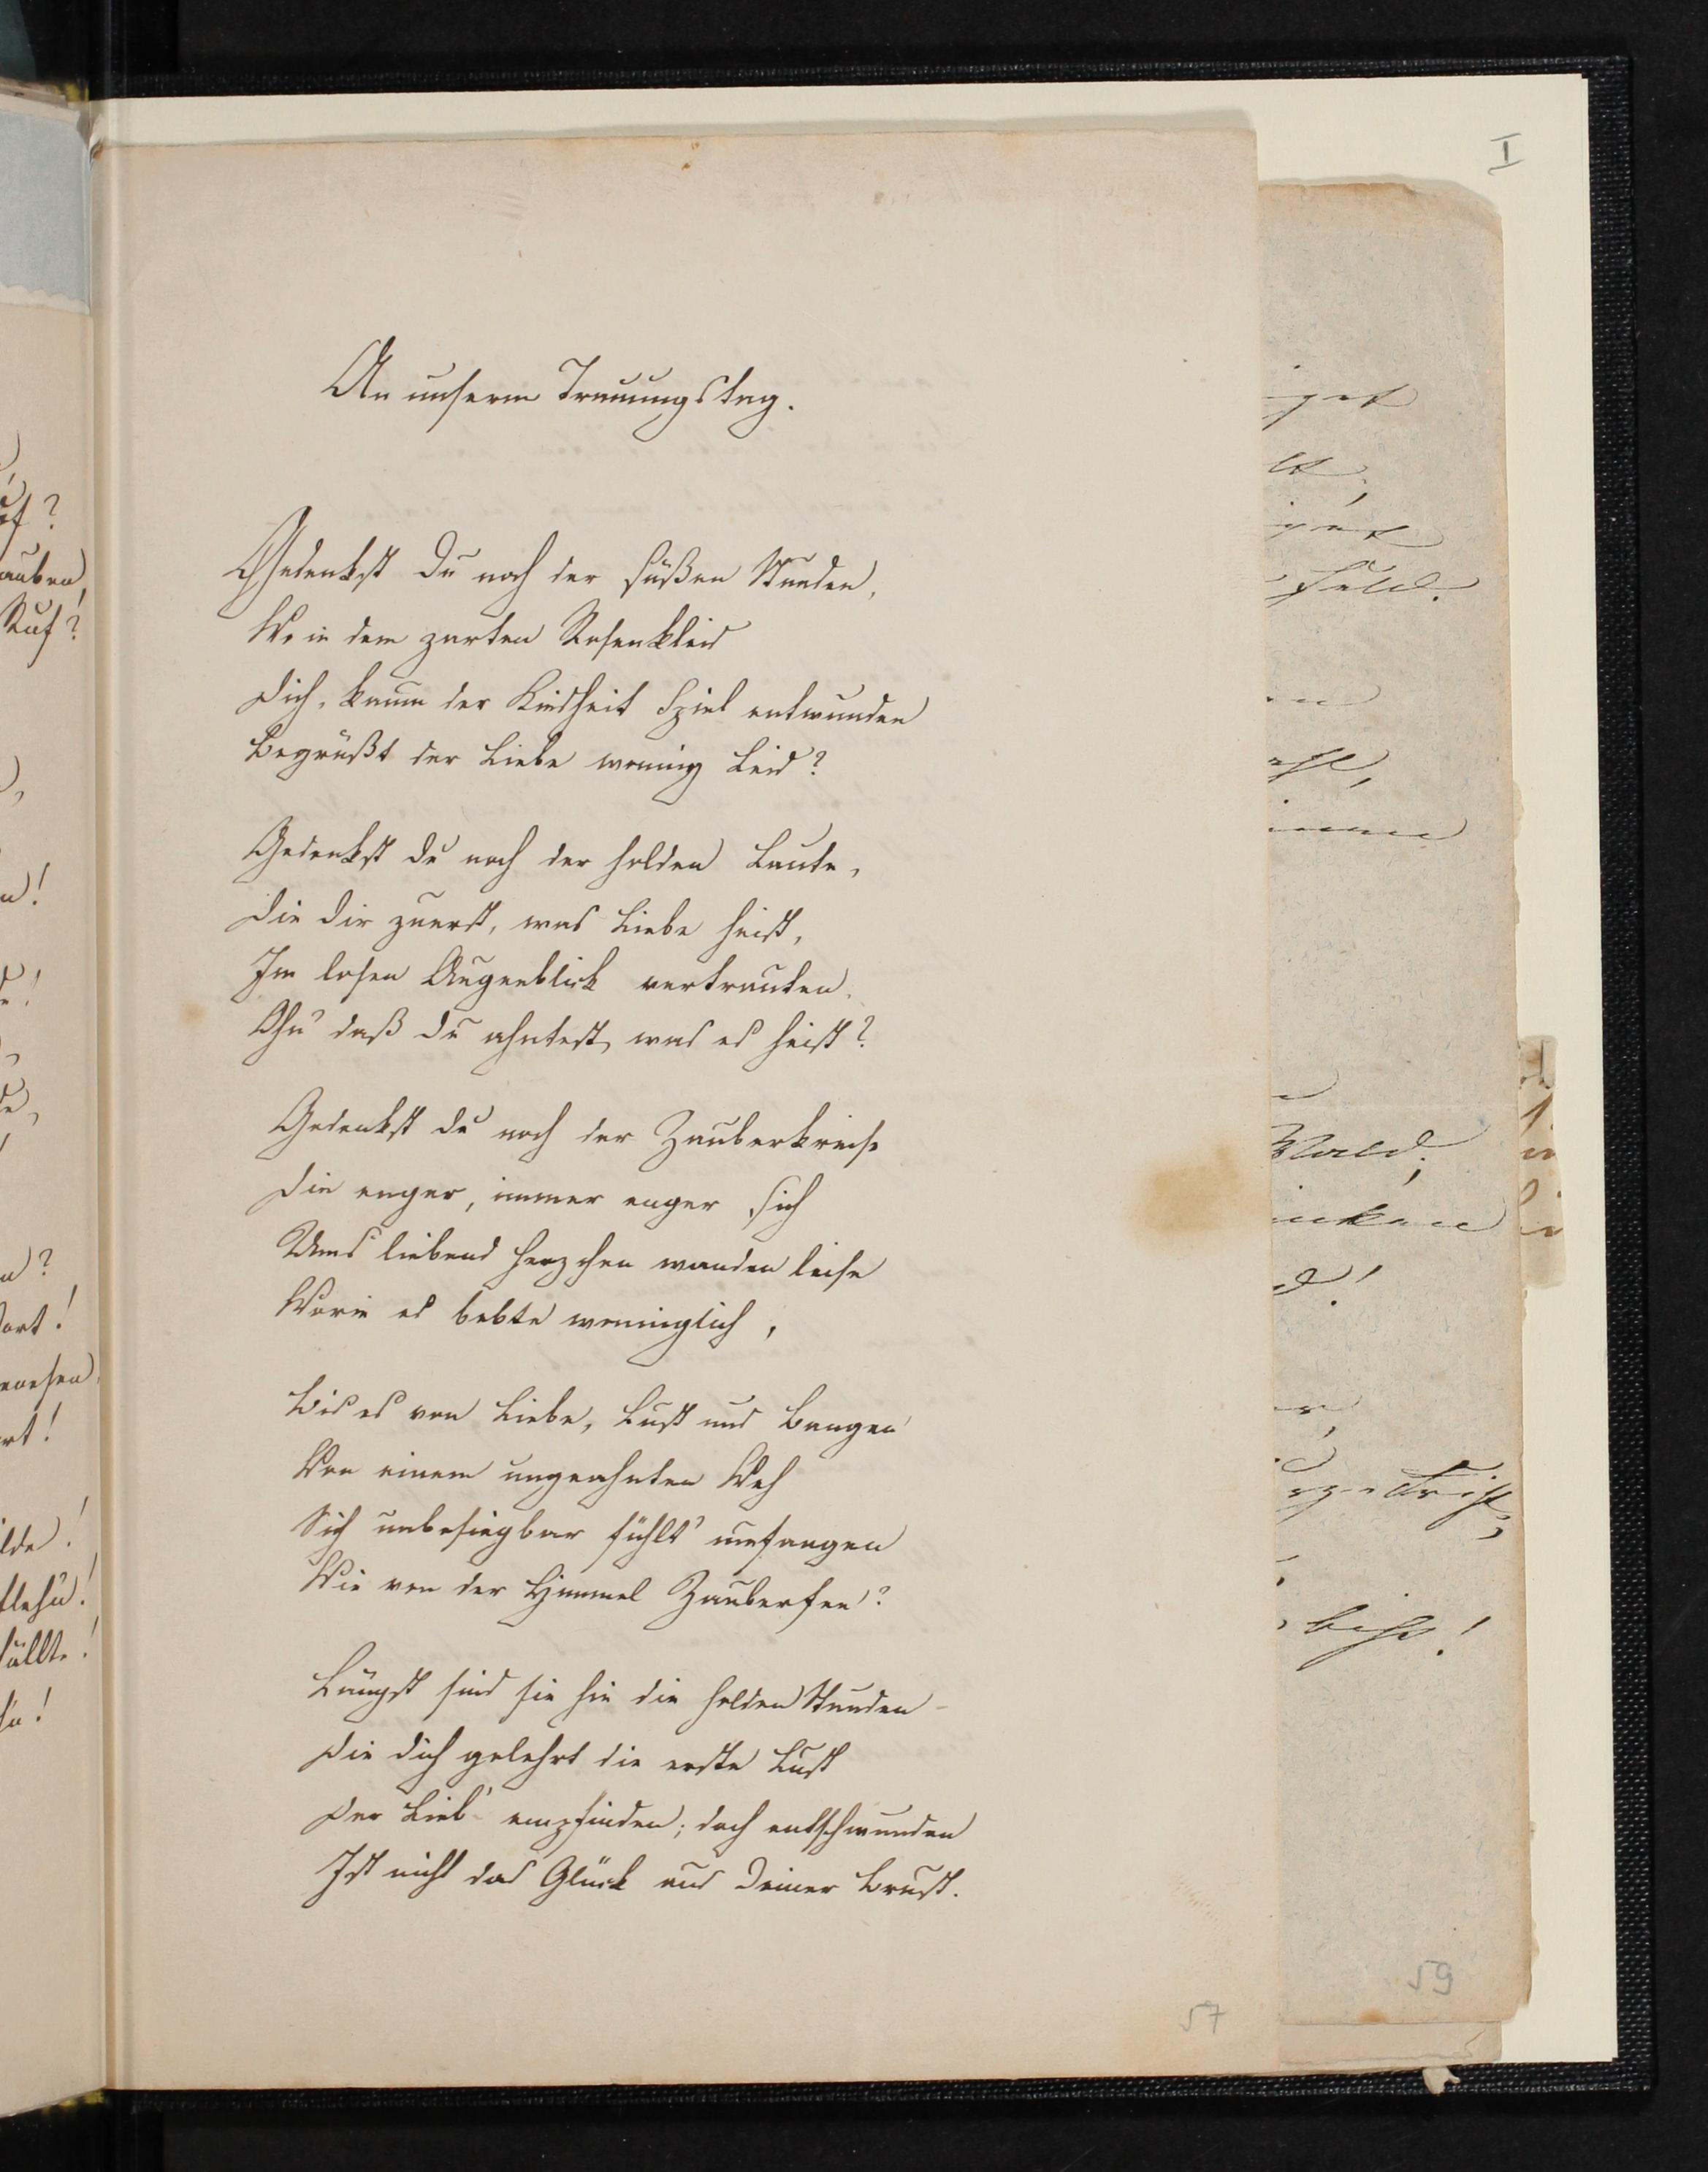 I
An unserm Trauungstag.
Gedenkst Du noch der süßen Stunden,
Wo in dem zarten Rosenkleid
Dich, kaum der Kindheit Spiel entwunden
Begrüßt der Liebe wonnig Leid?
Gedenkst du noch der holden Laute,
Die dir zuerst, was Liebe heist,
Im losen Augenblick vertrauten,
Ohn' daß du ahntest, was es heist?
Gedenkst du noch der Zauberkreise
Die enger, immer enger sich
Ums liebend Herzchen wanden leise
Worin es bebte wonniglich,
Bis es von Liebe, Lust und Bangen
Von einem ungeahnten Weh
Sich unbesiegbar fühlt' umfangen
Wie von der Himmel Zauberfee?
Längst sind sie hin die holden Stunden –
Die dich gelehrt die erste Lust
Der Lieb' empfinden; doch entschwunden
Ist nicht das Glück aus Deiner Brust.
57
59
auben,
Ruf?
Wald;